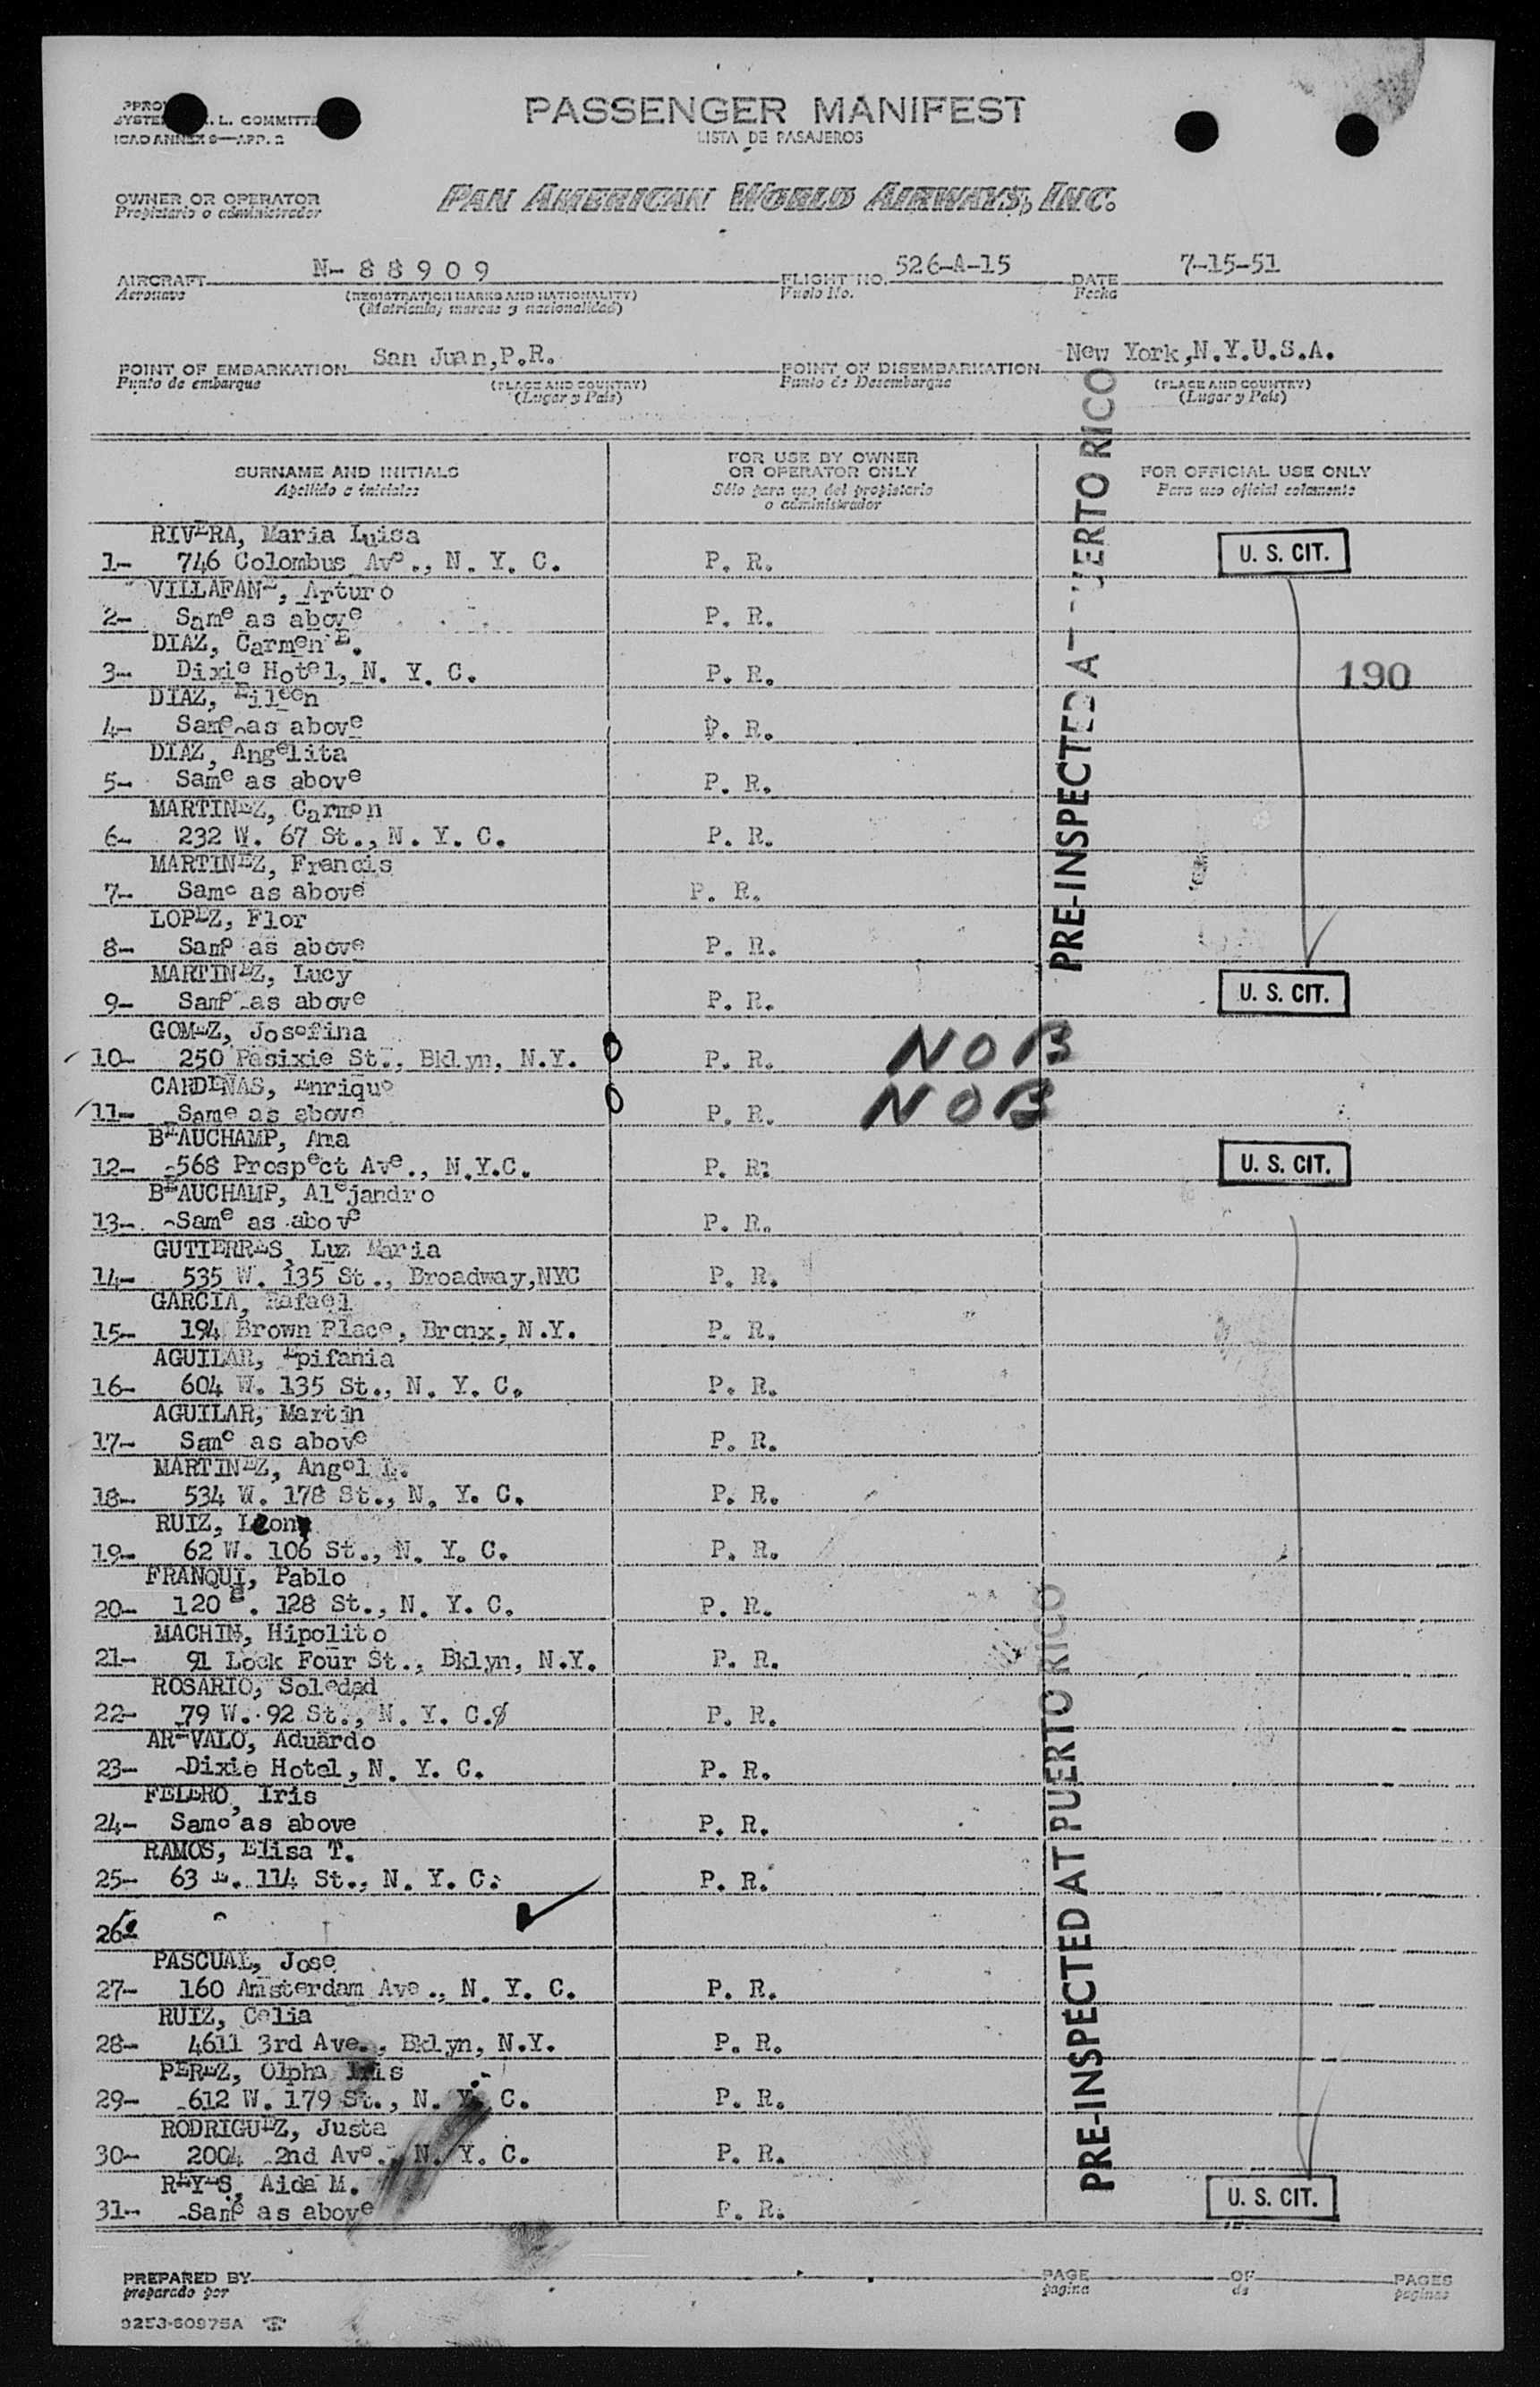 PASSENGER MANIFEST
LISTA DE PASAJEROS
L. COMMITTE
ICAO ANNEX 9—APP. 2
OWNER OR OPERATOR
Propietario o administrador
PAN AMERICAN WORLD AIRWAYS, INC.
AIRCRAFT N- 8 8 9 0 9 FLIGHT NO. 526-A-15 DATE 7-15-51
Aeronave (REGISTRATION MARKS AND NATIONALITY) Vuelo No. Fecha
(Matricula, marcas y nacionalidad)
POINT OF EMBARKATION San Juan,P.R. POINT OF DISEMBARKATION New York,N.Y.U.S.A.
Punto de embarque (PLACE AND COUNTRY) Punto de Desembarque (PLACE AND COUNTRY)
(Lugar y Pais) (Lugar y Pais)
SURNAME AND INITIALS FOR USE BY OWNER OR OPERATOR ONLY FOR OFFICIAL USE ONLY
Apellido e iniciales Sólo para uso del propietario o administrador Para uso oficial solamente
RIVERA, Maria Luisa
1- 746 Colombus Ave., N. Y. C. P. R. U. S. CIT.
VILLAFANE, Arturo
2- Same as above P. R.
DIAZ, Carmen E.
3- Dixie Hotel, N. Y. C. P. R. 190
DIAZ, Eileen
4- Same as above P. R.
DIAZ, Angelita
5- Same as above P. R.
MARTINEZ, Carmen
6- 232 W. 67 St., N. Y. C. P. R.
MARTINEZ, Francis
7- Same as above P. R.
LOPEZ, Flor
8- Same as above P. R.
MARTINEZ, Lucy
9- Same as above P. R. U. S. CIT.
GOMEZ, Josefina
10- 250 St., Bklyn, N.Y. 0 P. R. NOB
CARDENAS, Enrique
11- Same as above 0 P. R. NOB
BEAUCHAMP, Ana
12- 568 Prospect Ave., N.Y.C. P. R. U. S. CIT.
BEAUCHAMP, Alejandro
13- Same as above P. R.
GUTIERRES, Luz Maria
14- 535 W. 135 St., Broadway,NYC P. R.
GARCIA, Rafael
15- 194 Brown Place, Bronx, N.Y. P. R.
AGUILAR, Epifania
16- 604 W. 135 St., N. Y. C. P. R.
AGUILAR, Martin
17- Same as above P. R.
MARTINEZ, Angel L.
18- 534 W. 178 St., N. Y. C. P. R.
RUIZ,
19- 62 W. 106 St., N. Y. C. P. R.
FRANQUI, Pablo
20- 120 E. 128 St., N. Y. C. P. R.
MACHIN, Hipolito
21- 91 Lock Four St., Bklyn, N.Y. P. R.
ROSARIO, Soledad
22- 79 W. 92 St., N. Y. C. P. R.
AREVALO, Aduardo
23- Dixie Hotel, N. Y. C. P. R.
FELERO, Iris
24- Same as above P. R.
RAMOS, Elisa T.
25- 63 E. 114 St., N. Y. C. P. R.
26-
PASCUAL, Jose
27- 160 Amsterdam Ave., N. Y. C. P. R.
RUIZ, Celia
28- 4611 3rd Ave., Bklyn, N.Y. P. R.
PEREZ, Olpha Iris
29- 612 W. 179 St., N. Y. C. P. R.
RODRIGUEZ, Justa
30- 2004 2nd Ave., N. Y. C. P. R.
REYES, Aida M.
31- Same as above P. R. U. S. CIT.
PRE-INSPECTED AT PUERTO RICO
PRE-INSPECTED AT PUERTO RICO
PREPARED BY PAGE OF PAGES
preparado por pagina de paginas
9253-60975A